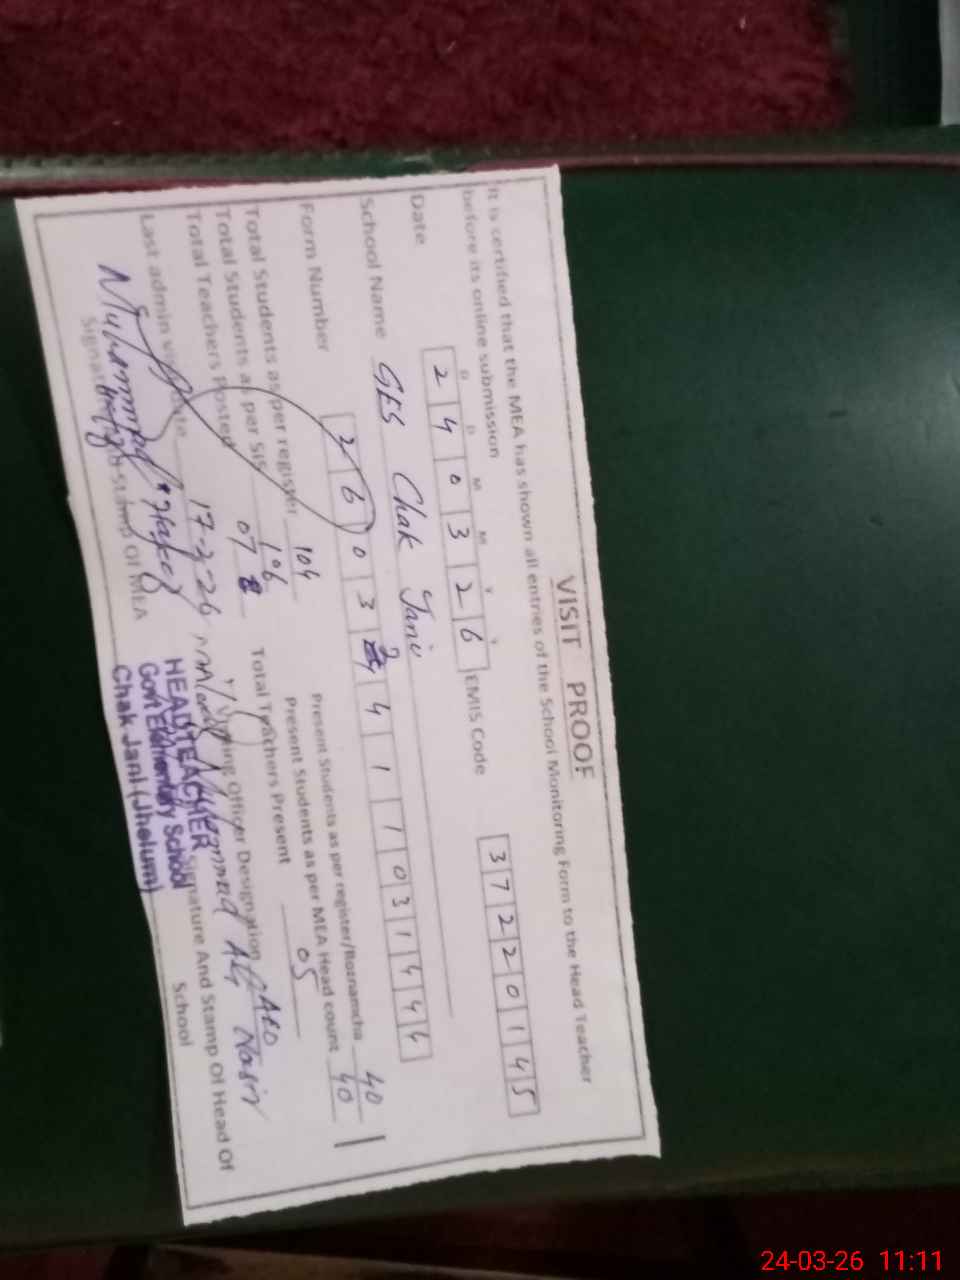 VISIT PROOF
It is certified that the MEA has shown all entries of the School Monitoring Form to the Head Teacher
before its online submission
D D M M Y Y
Date 2 4 0 3 2 6 EMIS Code 3 7 2 2 0 1 4 5
School Name GES Chak Jani
Form Number 2 6 0 3 2 4 4 1 1 0 3 1 4 4 4
Total Students as per register 104 Present Students as per register/Roznamcha 40
Total Students as per SIS 106 Present Students as per MEA Head count 40
Total Teachers posted 07 Total Teachers Present 05
Last admin visit date 17-3-26 Visiting Officer Designation AEO
Signature And Stamp Of MEA Signature And Stamp Of Head Of
School
HEADTEACHER
Govt Elementary School
Chak Jani (Jhelum)
24-03-26 11:11